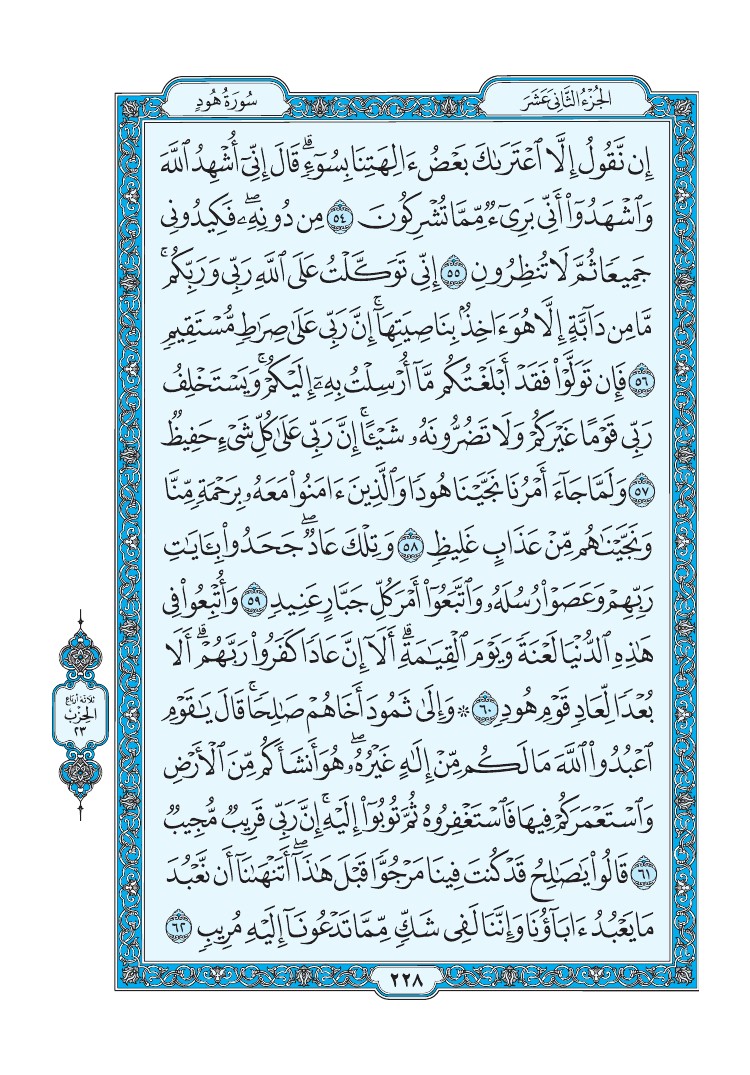 الجُزْءُ الثَّانِي عَشَرَ
سُورَةُ هُودٍ
إِن نَّقُولُ إِلَّا ٱعْتَرَىٰكَ بَعْضُ ءَالِهَتِنَا بِسُوٓءٍۗ قَالَ إِنِّىٓ أُشْهِدُ ٱللَّهَ
وَٱشْهَدُوٓاْ أَنِّى بَرِىٓءٌ مِّمَّا تُشْرِكُونَ ٥٤ مِن دُونِهِۦۖ فَكِيدُونِى
جَمِيعًا ثُمَّ لَا تُنظِرُونِ ٥٥ إِنِّى تَوَكَّلْتُ عَلَى ٱللَّهِ رَبِّى وَرَبِّكُمۚ
مَّا مِن دَآبَّةٍ إِلَّا هُوَ ءَاخِذُۢ بِنَاصِيَتِهَآۚ إِنَّ رَبِّى عَلَىٰ صِرَٰطٍ مُّسْتَقِيمٍ
٥٦ فَإِن تَوَلَّوْاْ فَقَدْ أَبْلَغْتُكُم مَّآ أُرْسِلْتُ بِهِۦٓ إِلَيْكُمْۚ وَيَسْتَخْلِفُ
رَبِّى قَوْمًا غَيْرَكُمْ وَلَا تَضُرُّونَهُۥ شَيْـًٔاۚ إِنَّ رَبِّى عَلَىٰ كُلِّ شَىْءٍ حَفِيظٌ
٥٧ وَلَمَّا جَآءَ أَمْرُنَا نَجَّيْنَا هُودًا وَٱلَّذِينَ ءَامَنُواْ مَعَهُۥ بِرَحْمَةٍ مِّنَّا
وَنَجَّيْنَٰهُم مِّنْ عَذَابٍ غَلِيظٍ ٥٨ وَتِلْكَ عَادٌۖ جَحَدُواْ بِـَٔايَٰتِ
رَبِّهِمْ وَعَصَوْاْ رُسُلَهُۥ وَٱتَّبَعُوٓاْ أَمْرَ كُلِّ جَبَّارٍ عَنِيدٍ ٥٩ وَأُتْبِعُواْ فِى
هَٰذِهِ ٱلدُّنْيَا لَعْنَةً وَيَوْمَ ٱلْقِيَٰمَةِۗ أَلَآ إِنَّ عَادًا كَفَرُواْ رَبَّهُمْۗ أَلَا
بُعْدًا لِّعَادٍ قَوْمِ هُودٍ ٦٠ ۞ وَإِلَىٰ ثَمُودَ أَخَاهُمْ صَٰلِحًاۚ قَالَ يَٰقَوْمِ
ٱعْبُدُواْ ٱللَّهَ مَا لَكُم مِّنْ إِلَٰهٍ غَيْرُهُۥۖ هُوَ أَنشَأَكُم مِّنَ ٱلْأَرْضِ
وَٱسْتَعْمَرَكُمْ فِيهَا فَٱسْتَغْفِرُوهُ ثُمَّ تُوبُوٓاْ إِلَيْهِۚ إِنَّ رَبِّى قَرِيبٌ مُّجِيبٌ
٦١ قَالُواْ يَٰصَٰلِحُ قَدْ كُنتَ فِينَا مَرْجُوًّا قَبْلَ هَٰذَآۖ أَتَنْهَىٰنَآ أَن نَّعْبُدَ
مَا يَعْبُدُ ءَابَآؤُنَا وَإِنَّنَا لَفِى شَكٍّ مِّمَّا تَدْعُونَآ إِلَيْهِ مُرِيبٍ ٦٢
ثلاثة أرباع
الحِزْب
٢٣
٢٢٨